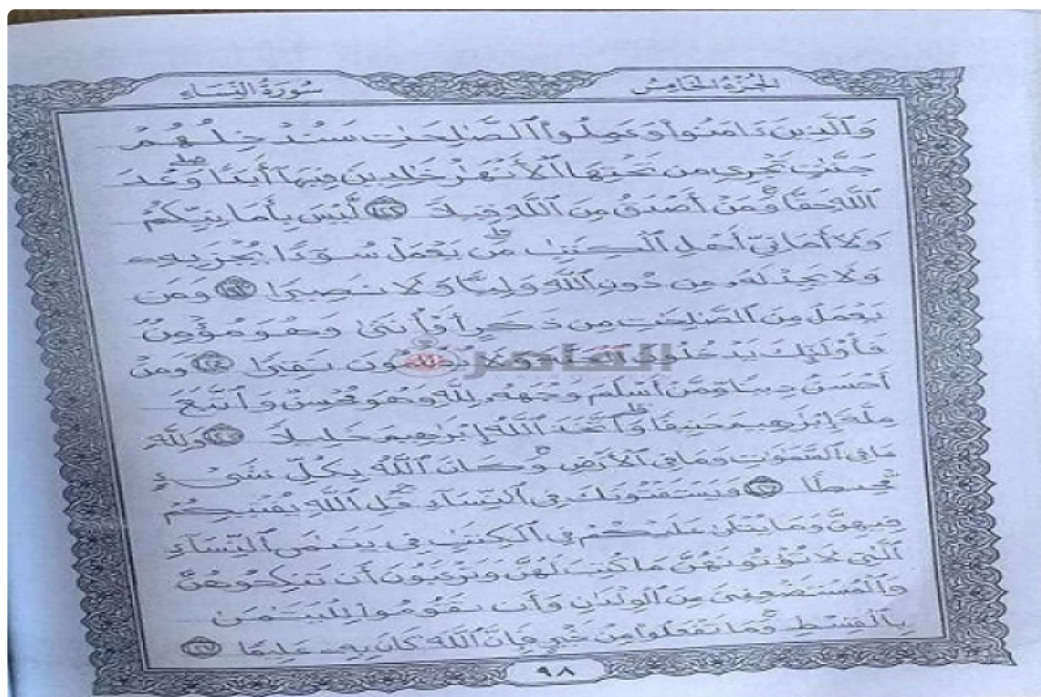 الجُزْءُ الخَامِسُ
سُورَةُ النِّسَاءِ
وَٱلَّذِينَ ءَامَنُوا۟ وَعَمِلُوا۟ ٱلصَّٰلِحَٰتِ سَنُدْخِلُهُمْ
جَنَّٰتٍ تَجْرِى مِن تَحْتِهَا ٱلْأَنْهَٰرُ خَٰلِدِينَ فِيهَآ أَبَدًا ۖ وَعْدَ
ٱللَّهِ حَقًّا ۚ وَمَنْ أَصْدَقُ مِنَ ٱللَّهِ قِيلًا ١٢٢ لَّيْسَ بِأَمَانِيِّكُمْ
وَلَآ أَمَانِىِّ أَهْلِ ٱلْكِتَٰبِ ۗ مَن يَعْمَلْ سُوٓءًا يُجْزَ بِهِۦ
وَلَا يَجِدْ لَهُۥ مِن دُونِ ٱللَّهِ وَلِيًّا وَلَا نَصِيرًا ١٢٣ وَمَن
يَعْمَلْ مِنَ ٱلصَّٰلِحَٰتِ مِن ذَكَرٍ أَوْ أُنثَىٰ وَهُوَ مُؤْمِنٌ
فَأُو۟لَٰٓئِكَ يَدْخُلُونَ نَقِيرًا ١٢٤ وَمَنْ
أَحْسَنُ دِينًا مِّمَّنْ أَسْلَمَ وَجْهَهُۥ لِلَّهِ وَهُوَ مُحْسِنٌ وَٱتَّبَعَ
مِلَّةَ إِبْرَٰهِيمَ حَنِيفًا ۗ وَٱتَّخَذَ ٱللَّهُ إِبْرَٰهِيمَ خَلِيلًا ١٢٥ وَلِلَّهِ
مَا فِى ٱلسَّمَٰوَٰتِ وَمَا فِى ٱلْأَرْضِ ۚ وَكَانَ ٱللَّهُ بِكُلِّ شَىْءٍ
مُّحِيطًا ١٢٦ وَيَسْتَفْتُونَكَ فِى ٱلنِّسَآءِ ۖ قُلِ ٱللَّهُ يُفْتِيكُمْ
فِيهِنَّ وَمَا يُتْلَىٰ عَلَيْكُمْ فِى ٱلْكِتَٰبِ فِى يَتَٰمَى ٱلنِّسَآءِ
ٱلَّٰتِى لَا تُؤْتُونَهُنَّ مَا كُتِبَ لَهُنَّ وَتَرْغَبُونَ أَن تَنكِحُوهُنَّ
وَٱلْمُسْتَضْعَفِينَ مِنَ ٱلْوِلْدَٰنِ وَأَن تَقُومُوا۟ لِلْيَتَٰمَىٰ
بِٱلْقِسْطِ ۚ وَمَا تَفْعَلُوا۟ مِنْ خَيْرٍ فَإِنَّ ٱللَّهَ كَانَ بِهِۦ عَلِيمًا ١٢٧
٩٨